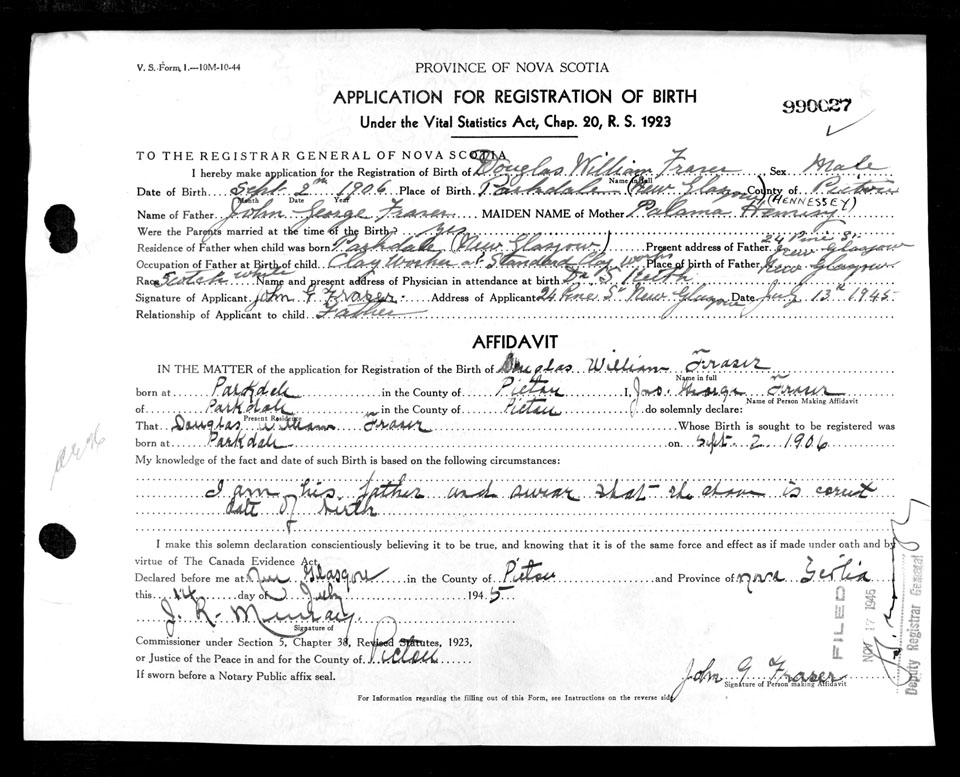 V. S. Form, 1.—10M-10-44
PROVINCE OF NOVA SCOTIA
APPLICATION FOR REGISTRATION OF BIRTH
990027
Under the Vital Statistics Act, Chap. 20, R. S. 1923
TO THE REGISTRAR GENERAL OF NOVA SCOTIA
I hereby make application for the Registration of Birth of Douglas William Fraser Sex Male
Name in full
Date of Birth Sept 2nd 1906 Place of Birth Parkdale (New Glasgow) County of Pictou
Month Date Year
(HENNESSEY)
Name of Father John George Fraser MAIDEN NAME of Mother
Were the Parents married at the time of the Birth? Yes
24 Pine St.
Residence of Father when child was born Parkdale (New Glasgow) Present address of Father New Glasgow
Occupation of Father at Birth of child Clay Worker at Standard Clay Works Place of birth of Father New Glasgow
Race Scotch white Name and present address of Physician in attendance at birth Dr S Keith
Signature of Applicant John G Fraser Address of Applicant 24 Pine St New Glasgow Date July 13th 1945
Relationship of Applicant to child Father
AFFIDAVIT
IN THE MATTER of the application for Registration of the Birth of Douglas William Fraser
Name in full
born at Parkdale in the County of Pictou I, Jno. George Fraser
Name of Person Making Affidavit
of Parkdale in the County of Pictou do solemnly declare:
Present Residence
That Douglas William Fraser Whose Birth is sought to be registered was
born at Parkdale on Sept. 2 1906
My knowledge of the fact and date of such Birth is based on the following circumstances:
I am his father and swear that the above is correct
date of birth
I make this solemn declaration conscientiously believing it to be true, and knowing that it is of the same force and effect as if made under oath and by
virtue of The Canada Evidence Act.
Declared before me at New Glasgow in the County of Pictou and Province of Nova Scotia
this 14 day of July 1945
J. R. Murray
Signature of
Commissioner under Section 5, Chapter 38, Revised Statutes, 1923,
or Justice of the Peace in and for the County of Pictou
If sworn before a Notary Public affix seal.
John G Fraser
Signature of Person making Affidavit
For Information regarding the filling out of this Form, see Instructions on the reverse side
FILED
NOV 17 1945
Deputy Registrar General